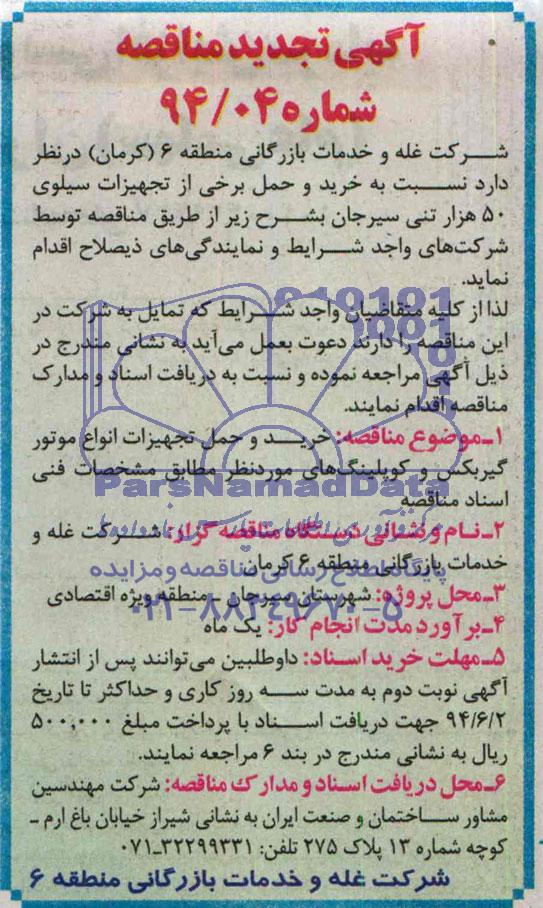 آگهی تجدید مناقصه
شماره ۹۴/۰۴
شرکت غله و خدمات بازرگانی منطقه ۶ (کرمان) درنظر
دارد نسبت به خرید و حمل برخی از تجهیزات سیلوی
۵۰ هزار تنی سیرجان بشرح زیر از طریق مناقصه توسط
شرکت‌های واجد شرایط و نمایندگی‌های ذیصلاح اقدام
نماید.
لذا از کلیه متقاضیان واجد شرایط که تمایل به شرکت در
این مناقصه را دارند دعوت بعمل می‌آید به نشانی مندرج در
ذیل آگهی مراجعه نموده و نسبت به دریافت اسناد و مدارک
مناقصه اقدام نمایند.
۱ـ موضوع مناقصه: خرید و حمل تجهیزات انواع موتور
گیربکس و کوپلینگ‌های موردنظر مطابق مشخصات فنی
ParsNamadData
اسناد مناقصه
۲ـ نام و نشانی دستگاه مناقصه گزار: شرکت غله و
خدمات بازرگانی منطقه ۶ کرمان
پایگاه اطلاع رسانی مناقصه و مزایده
۳ـ محل پروژه: شهرستان سیرجان ـ منطقه ویژه اقتصادی
۰۲۱-۸۸۳۴۹۶۷۰-۵
۴ـ برآورد مدت انجام کار: یک ماه
۵ـ مهلت خرید اسناد: داوطلبین می‌توانند پس از انتشار
آگهی نوبت دوم به مدت سه روز کاری و حداکثر تا تاریخ
۹۴/۶/۲ جهت دریافت اسناد با پرداخت مبلغ ۵۰۰,۰۰۰
ریال به نشانی مندرج در بند ۶ مراجعه نمایند.
۶ـ محل دریافت اسناد و مدارک مناقصه: شرکت مهندسین
مشاور ساختمان و صنعت ایران به نشانی شیراز خیابان باغ ارم ـ
کوچه شماره ۱۳ پلاک ۲۷۵ تلفن: ۳۲۲۹۹۳۳۱-۰۷۱
شرکت غله و خدمات بازرگانی منطقه ۶